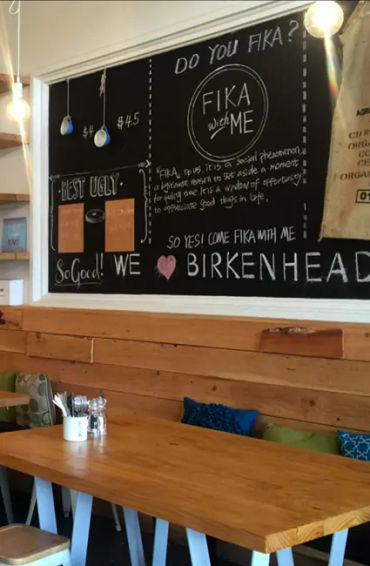 DO YOU FIKA?
FIKA
with
ME
$4
$4.5
"FIKA, to us, it is a social phenomenon,
a legitimate reason to set aside a moment
for quality time. It is a window of opportunity
to appreciate good things in life.
BEST UGLY
SO YES! COME FIKA WITH ME
So Good! WE BIRKENHEAD
ORGAN
ORGAN